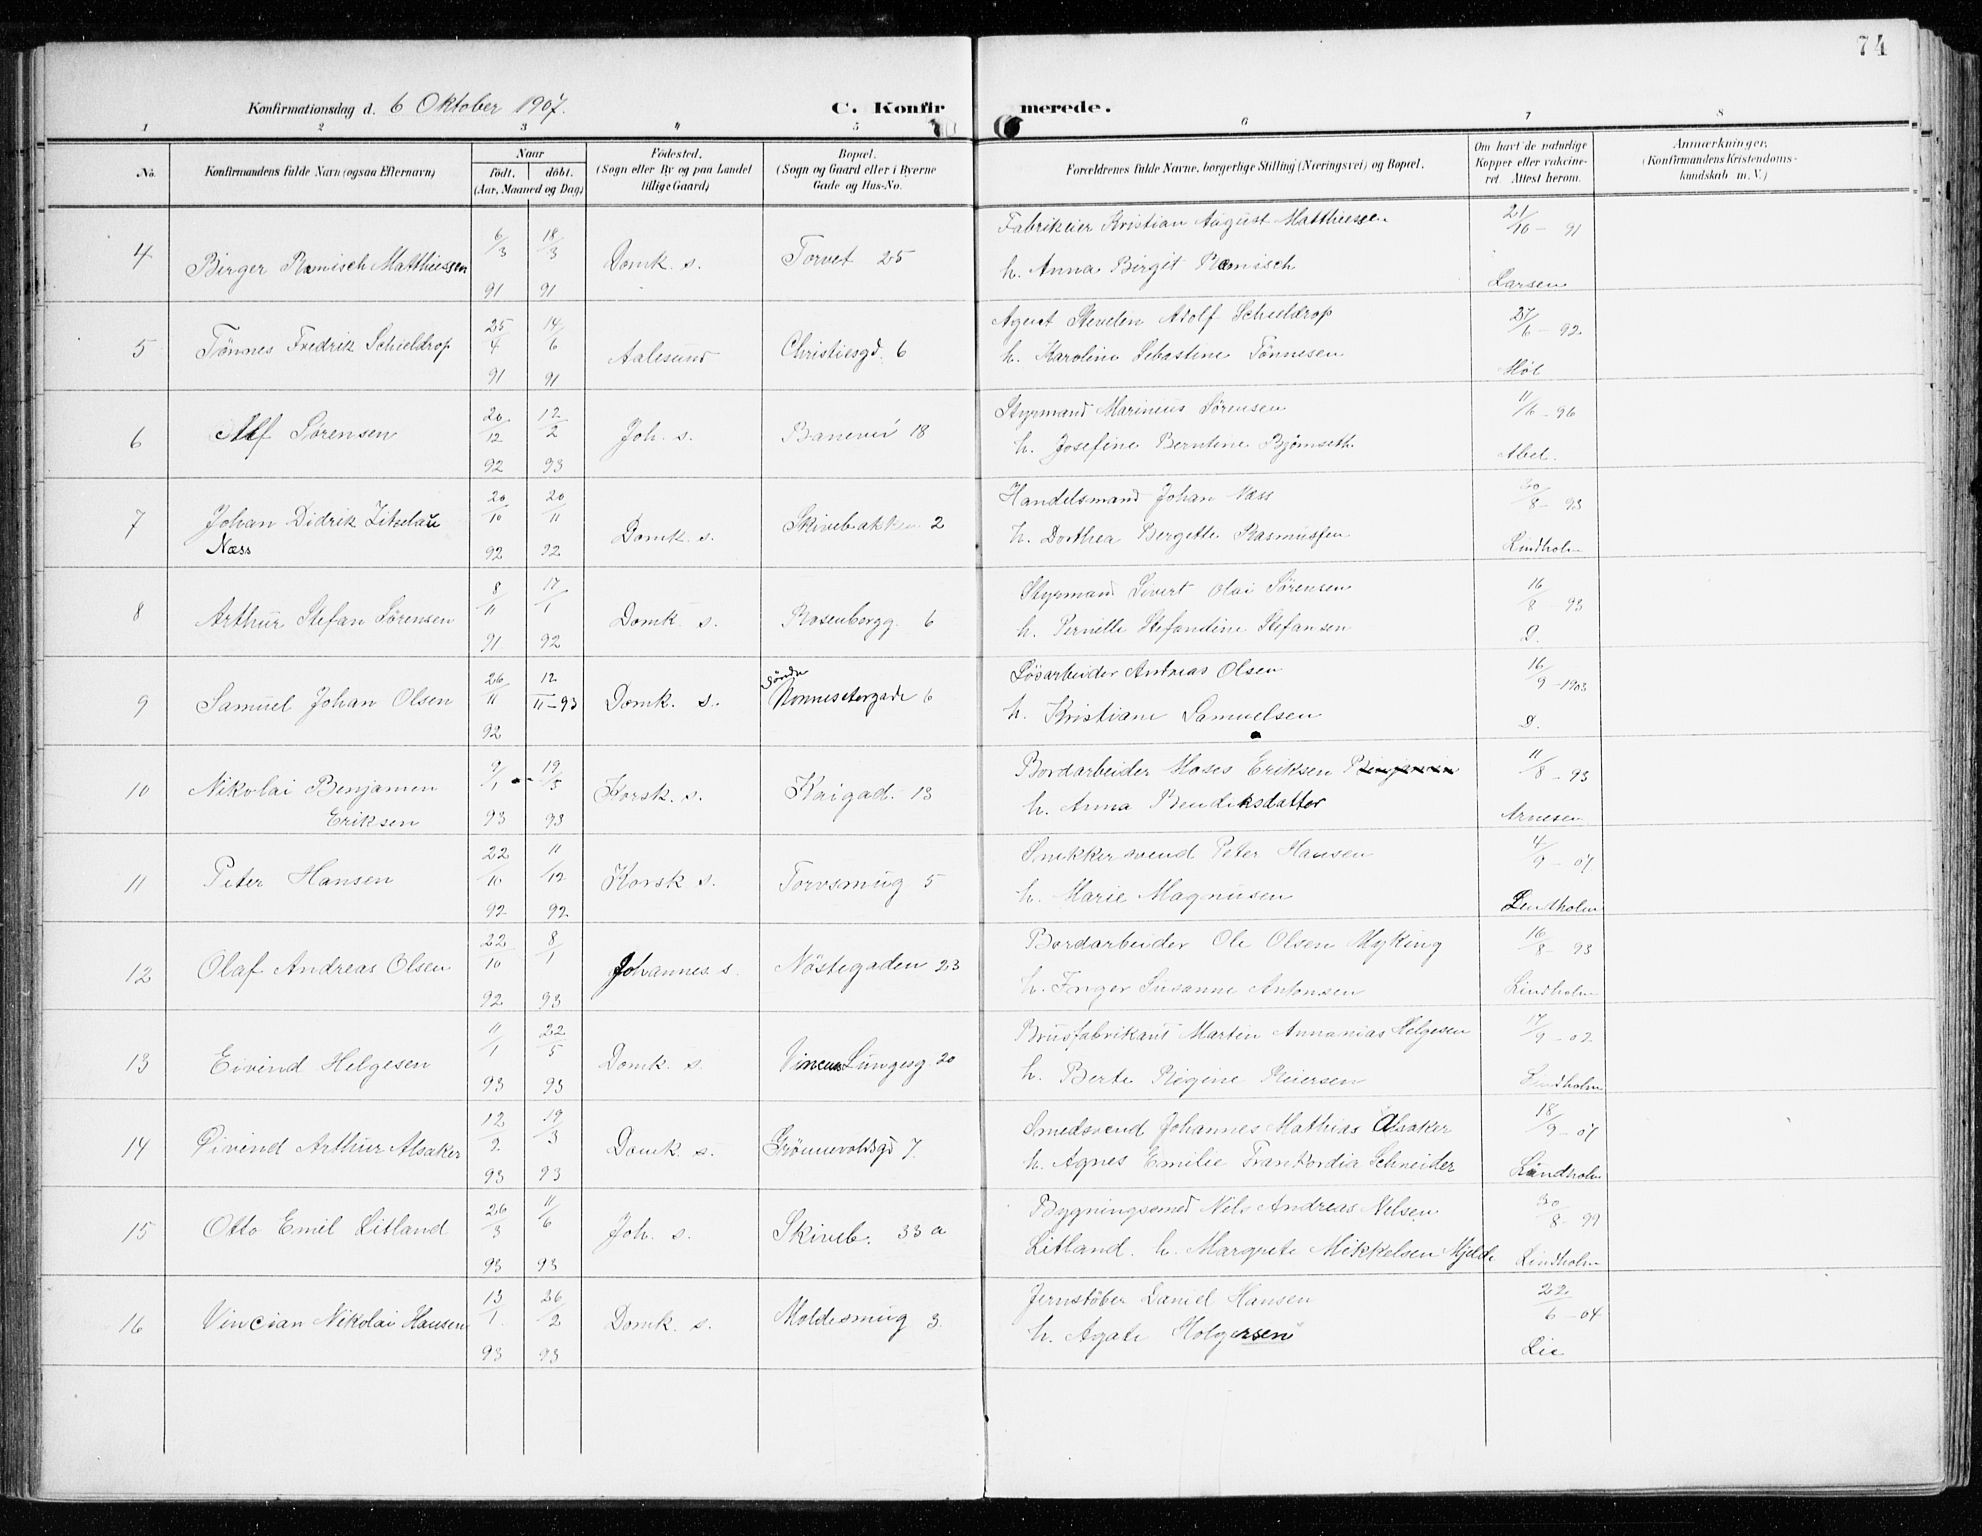 74
Konfirmationsdag d. 6 Oktober 1907.
C. Konfir merede.
1 2 3 4 5 6 7 8
No.
Konfirmandens fulde Navn (ogsaa Efternavn)
Naar
født. døbt.
(Aar, Maaned og Dag)
Fødested.
(Sogn eller By og paa Landet
tillige Gaard)
Bopæl.
(Sogn og Gaard eller i Byerne
Gade og Hus-No.
Forældrenes fulde Navne, borgerlige Stilling (Næringsvei) og Bopæl.
Om havt de naturlige
Kopper eller vaksine-
ret. Attest herom.
Anmærkninger.
(Konfirmandens Kristendoms-
kundskab m. V.)
4 Birger Rømisch Matthiessen 6/3 91 18/3 91 Domk. s. Torvet 25
Fabrikeier Kristian August Matthiessen 21/10 - 91
h. Anna Birgit Rømisch Larsen
5 Tønnes Fredrik Schieldrop 25/4 91 14/6 91 Aalesund Christiesgd. 6
Agent Adolf Schieldrop 27/6 - 92
h. Karoline Sebastine Tønnesen
6 Alf Sørensen 20/12 92 12/2 93 Joh. s. Banevei 18
Styrmand Marineus Sørensen 11/6 - 96
h. Josefine Berntine Bjørnseth Abel.
7 Johan Didrik Zitzelau 20/10 92 20/11 92 Domk. s. Skivebakken 2
Næss
Handelsmand Johan Næss 30/8 - 93
h. Dorthea Bergette Rasmussen Lindholm
8 Arthur Stefan Sørensen 8/11 91 17/1 92 Domk. s. Rosenbergg. 6
Styrmand Sivert Olai Sørensen 16/8 - 93
h. Pernille Stefandine Stefansen D.
9 Samuel Johan Olsen 26/11 92 12/II - 93 Domk. s. Søndre
Nonnesetergade 6
Løsarbeider Andreas Olsen 16/9 - 1903
h. Kristiane Samuelsen D.
10 Nikolai Benjamen 9/1 93 19/3 93 Korsk. s. Kaigad. 13
Eriksen
Bordarbeider Moses Eriksen 11/8 - 93
h. Anna Bendiksdatter Arnesen
11 Peter Hansen 22/10 92 11/12 92 Korsk s. Torvsmug 5
Snekkersvend Peter Hansen 4/9 - 07
h. Marie Magnusen Lindholm
12 Olaf Andreas Olsen 22/10 92 8/1 93 Johannes s. Nøstegaden 23
Bordarbeider Ole Olsen Myking 16/8 - 93
h. Inger Susanne Antonsen Lindholm
13 Eivind Helgesen 11/1 93 22/5 93 Domk. s. Vincens Lungesg 20
Brusfabrikant Martin Annanias Helgesen 17/9 - 02
h. Berte Regine Reiersen Lindholm
14 Øivind Arthur Alsaker 12/2 93 19/3 93 Domk s. Grønnevoldsgd 7.
Smedsvend Johannes Mathias Alsaker 18/9 - 07
h. Agnes Emilie Schneider Lindholm
15 Otto Emil Litland 26/3 93 11/6 93 Joh. s. Skiveb. 33 a
Bygningssmed Nels Andreas Nelsen 30/8 - 99
Litland. h. Margrete Mikkelsen Mjelde Lindholm
16 Vincian Nikolai Hansen 13/1 93 26/2 93 Domk. s. Moldesmug 3.
Jernstøber Daniel Hansen 22/6 - 04
h. Agate Holgersen Lie